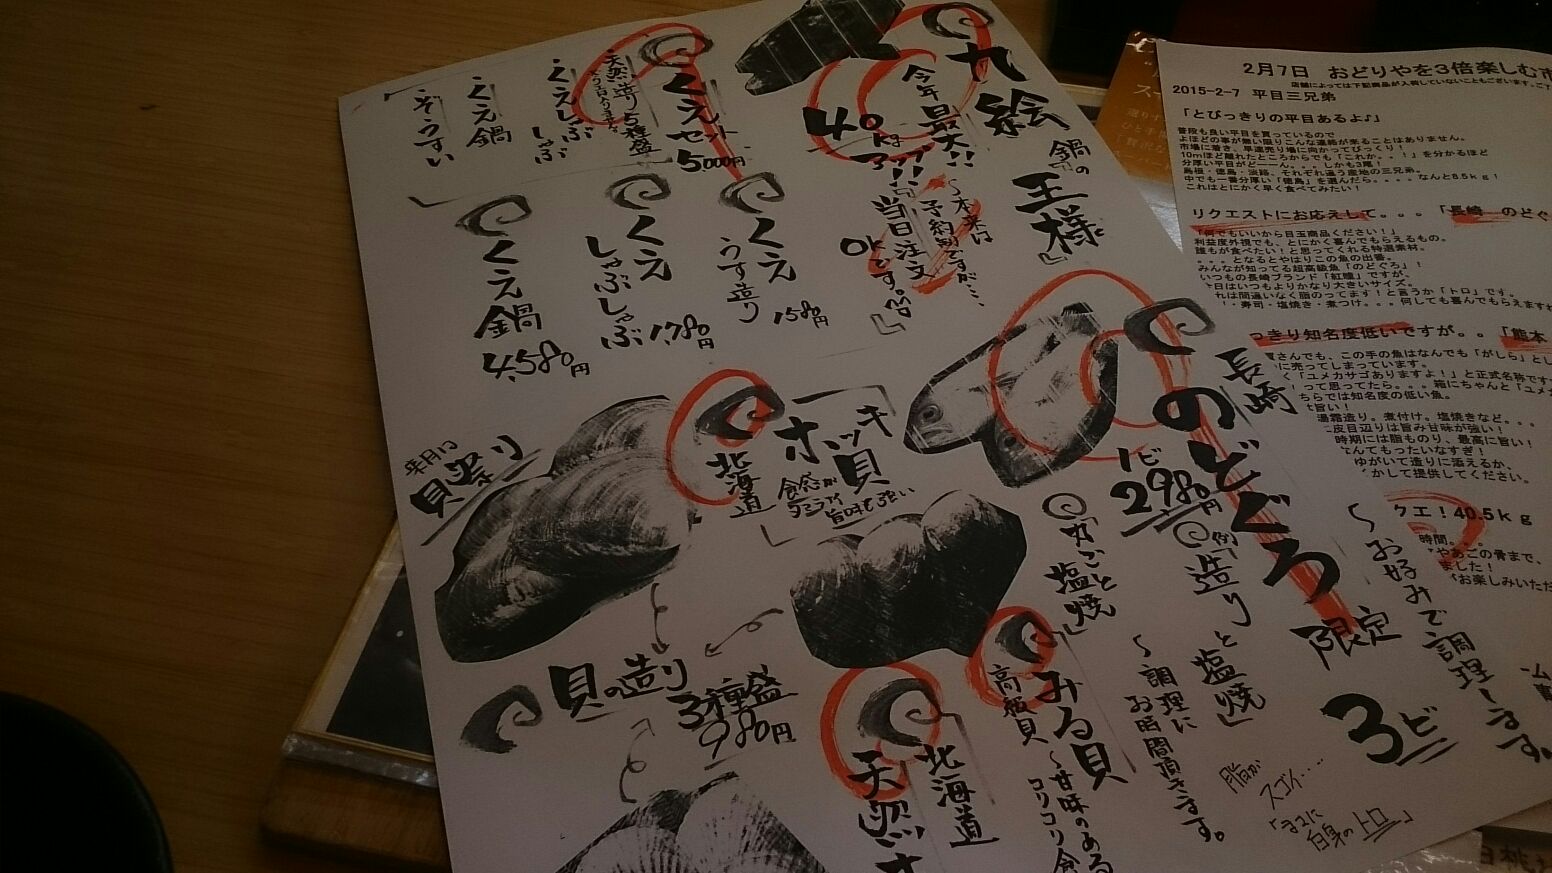 九絵
鍋の
王様
今年最大!!
40kg
~本来は
予約制ですが…、
当日注文
OKです。
くえセット
5,000円
天然造り5種盛
くえしゃぶ
しゃぶ
くえ鍋
ぞうすい
くえ
うす造り
1580円
くえ
しゃぶしゃぶ
1,780円
くえ鍋
4,580円
長崎
のどぐろ
限定
3ビ
1ビ
2980円
例「造りと塩焼」
「丸ごと
塩焼」
~お好みで調理します。
~調理に
お時間頂きます。
脂が
スゴイ……
「まさに
白身のトロ」
北海道
ホッキ貝
食感が
旨味も強い
平日に
貝祭り
貝の造り
3種盛
980円
みる貝
高級貝
~甘味のある
コリコリ食
北海道
天然ホ
2月7日 おどりやを3倍楽しむ市
2015-2-7 平目三兄弟
「とびっきりの平目あるよ♪」
普段も良い平目を買っているので
よほどの事が無い限りこんな連絡が来ることはありません。
市場に着き、早速売り場に向かってびっくり!
10mほど離れたところからでも「これか。。!」を分かるほど
分厚い平目がどーーん。。。しかも3尾!
島根・徳島・淡路、それぞれ違う産地の三兄弟。
中でも一番分厚い「徳島」を選んだら。。。。なんと8.5kg!
これはとにかく早く食べてみたい!
リクエストにお応えして。。。「長崎 のどぐ
「何でもいいから目玉商品ください!」
利益度外視でも、とにかく喜んでもらえるもの。
誰もが食べたい!と思ってくれる特選素材。
。。。となるとやはりこの魚の出番。
みんなが知ってる超高級魚「のどぐろ」!
いつもの長崎ブランド「紅瞳」ですが、
日はいつもよりかなり大きいサイズ。
れは間違いなく脂のってます!と言うか「トロ」です。
・寿司・塩焼き・煮つけ。。。何しても喜んでもらえます
っきり知名度低いですが。。「熊本
買さんでも、この手の魚はなんでも「がしら」とし
に売ってしまっています。
く「ユメカサゴありますよ!」と正式名称です
!って思ってたら。。。箱にちゃんと「ユメカ
ちらでは知名度の低い魚。
旨い!
湯霜造り。煮付け。塩焼きなど。。。
皮目辺りは旨み甘味が強い!
時期には脂ものり、最高に旨い!
なんてもったいなすぎ!
ゆがいて造りに添えるか、
かして提供してください。
クエ!40.5kg
時間。。。
やあごの骨まで、
ました!
お楽しみいただ